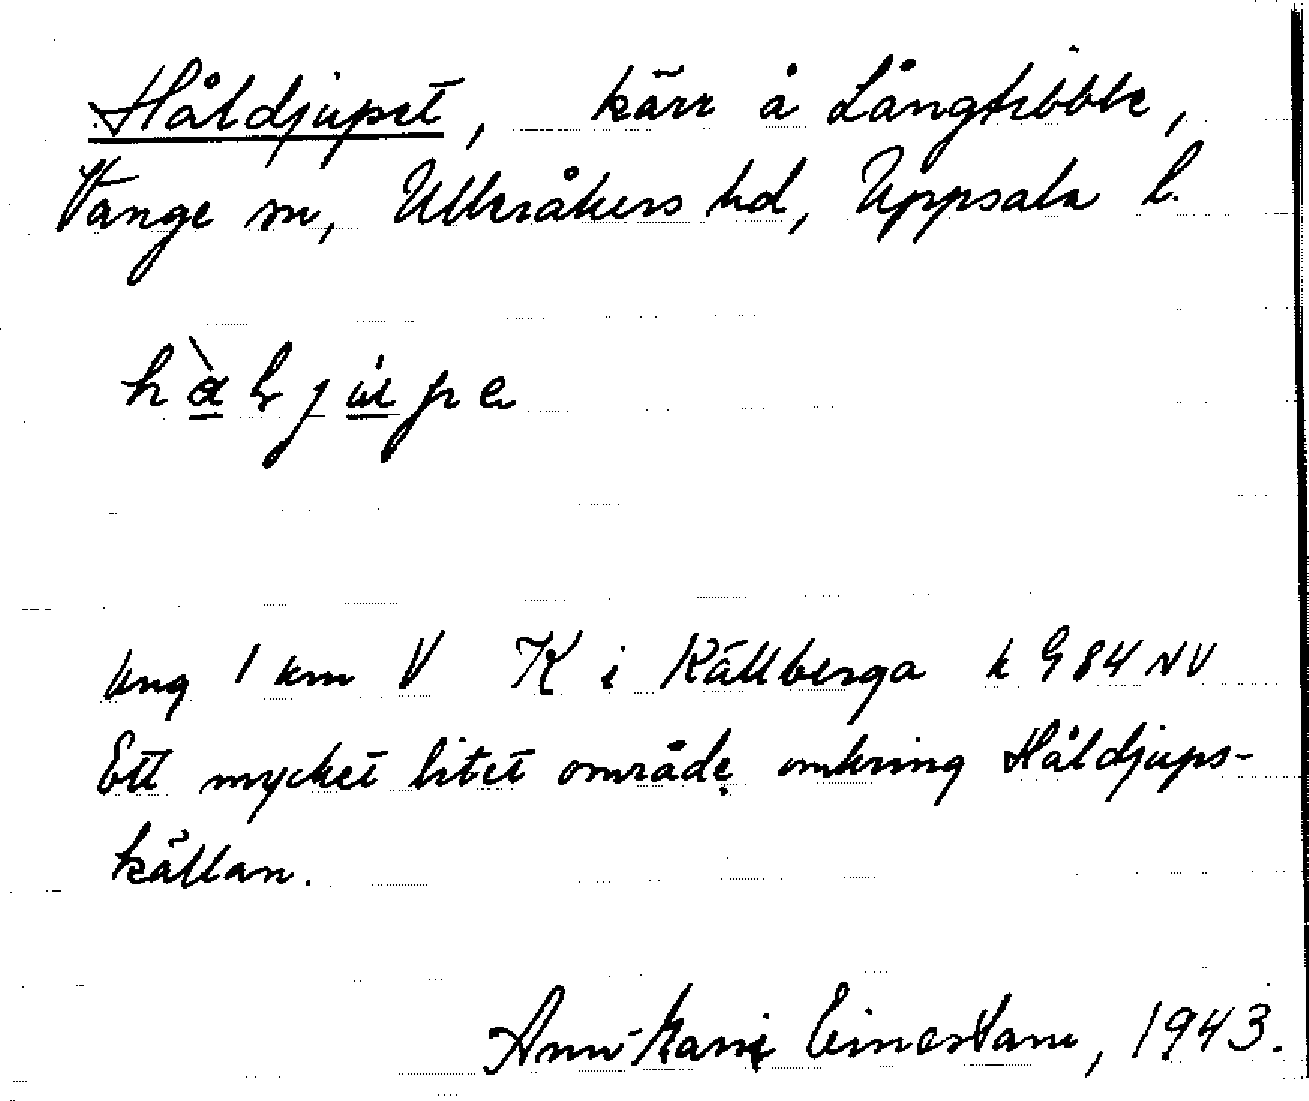 Håldjupet, kärr å Långtibble,
Vänge sn, Ulleråkers hd, Uppsala l.
ung 1 km V K i Källberga k G84 NV
Ett mycket litet område omkring Håldjups-
källan.
Ann-Mari Einerstam, 1943.